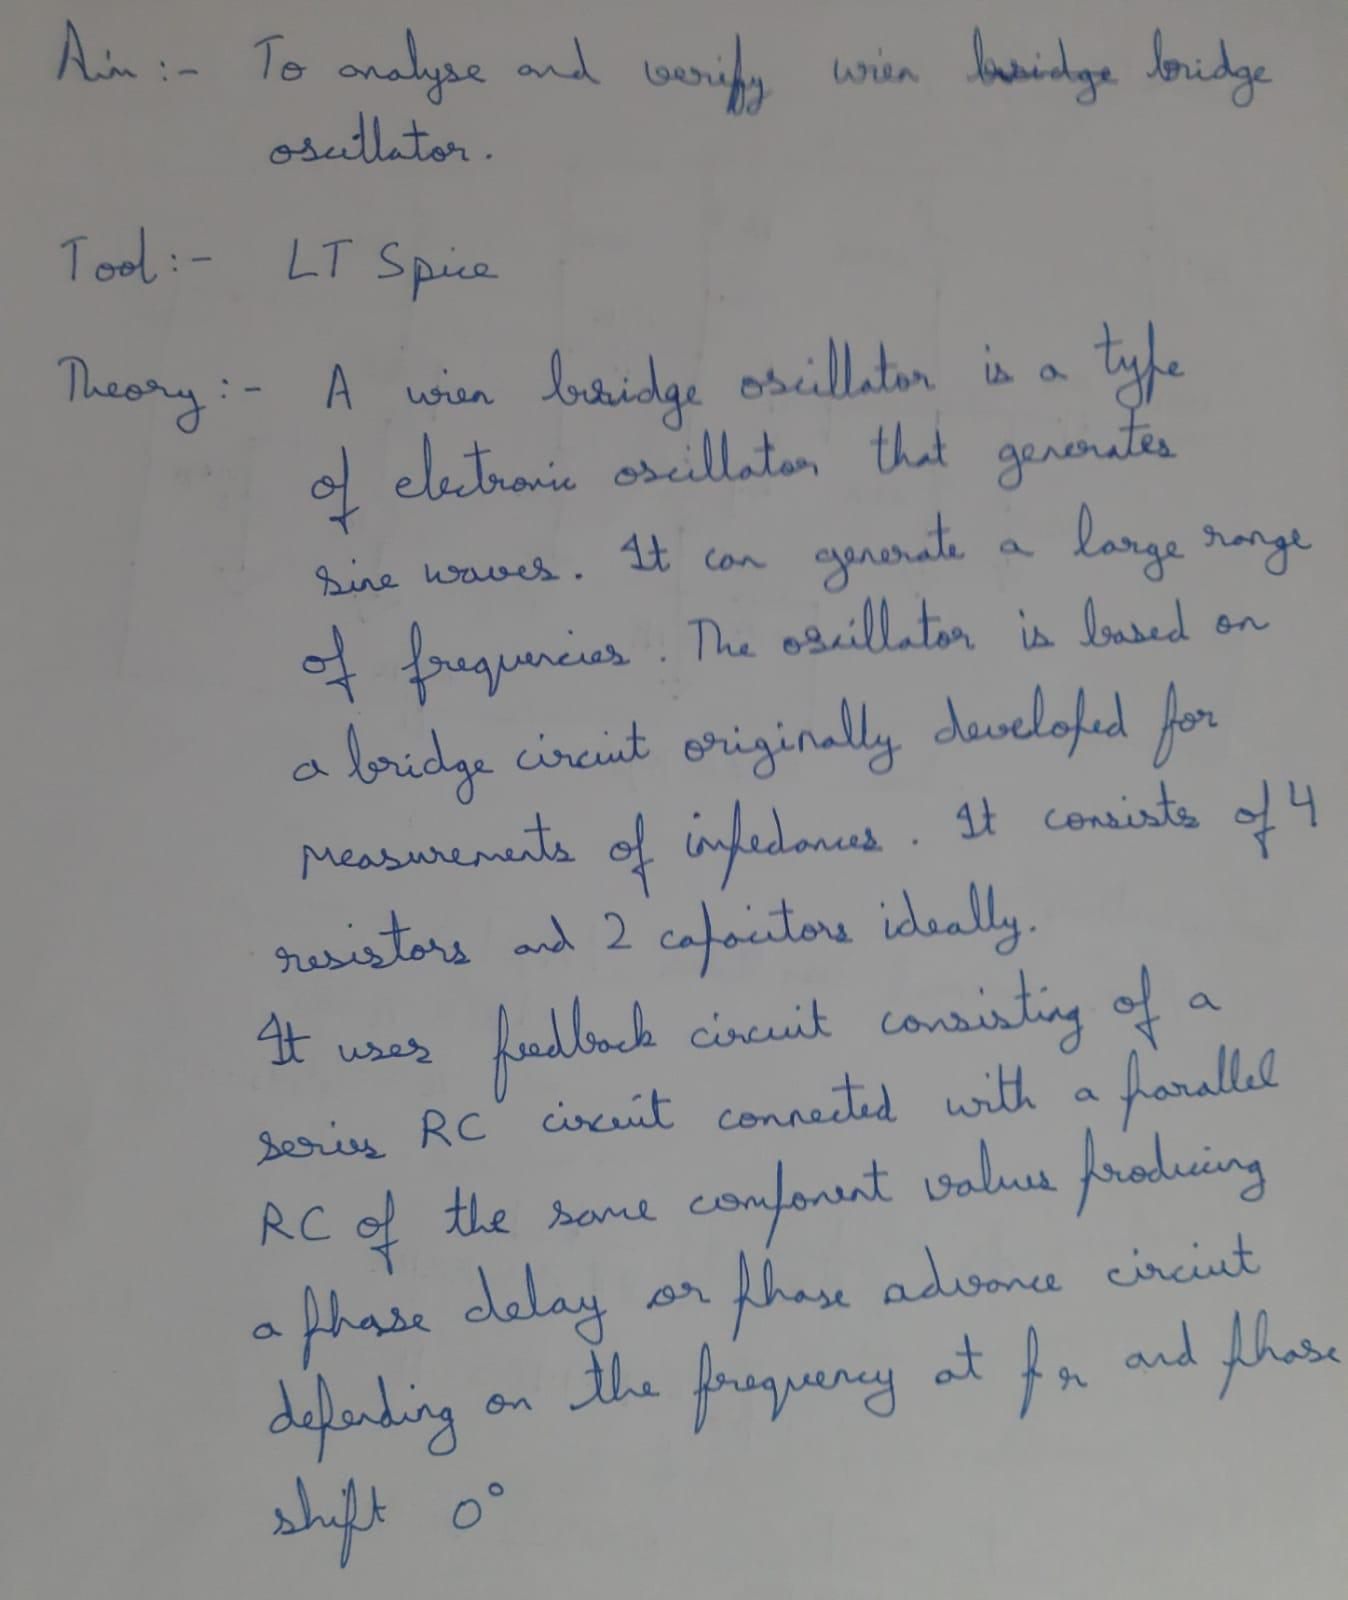 Aim :- To analyse and verify wien bridge bridge
oscillator.
Tool :- LT Spice
Theory :- A wien bridge oscillator is a type
of electronic oscillator that generates
sine waves. It can generate a large range
of frequencies. The oscillator is based on
a bridge circuit originally developed for
measurements of impedances. It consists of 4
resistors and 2 capacitors ideally.
It uses feedback circuit consisting of a
series RC circuit connected with a parallel
RC of the same component values producing
a phase delay or phase advance circuit
depending on the frequency at fr and phase
shift 0°